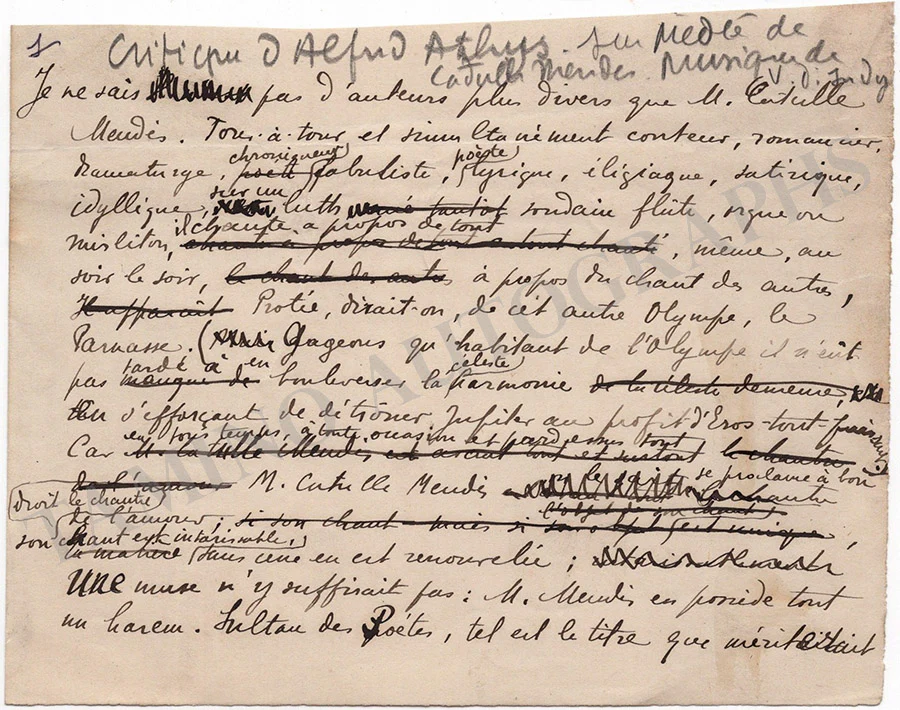 1
Critique d'Alfred Athys. sur Médée de
Catulle Mendès. Musique de
V. d'Indy
Je ne sais pas d'auteurs plus divers que M. Catulle
Mendès. Tour-à-tour et simultanément conteur, romancier,
chroniqueur poëte
dramaturge, poëte fabuliste, lyrique, élégiaque, satirique,
sur un
idyllique, luth soudain flûte, orgue ou
il chante, à propos de tout
mirliton, , même, au
soir le soir, le chant des autres à propos du chant des autres,
Il apparaît Protée, dirait-on, de cet autre Olympe, le
Parnasse. Gageons qu'habitant de l'Olympe il n'eût
tardé à en céleste
pas manqué de bouleverser la harmonie de la céleste demeure,
s'efforçant de détrôner Jupiter au profit d'Eros-tout-puissant.
en tous temps, à toute occasion et par dessus tout
Car M. Catulle Mendès est avant tout et surtout le chantre
de l'amour M. Catulle Mendès se proclame à bon
droit le chantre
de l'amour ; si son chant mais si son objet est unique,
(l'objet de son chant)
son chant est intarissable,
la matière sans cesse en est renouvelée ;
UNE muse n'y suffirait pas : M. Mendès en possède tout
un harem. Sultan des Poétes, tel est le titre que mériterait
TAMINO AUTOGRAPHS